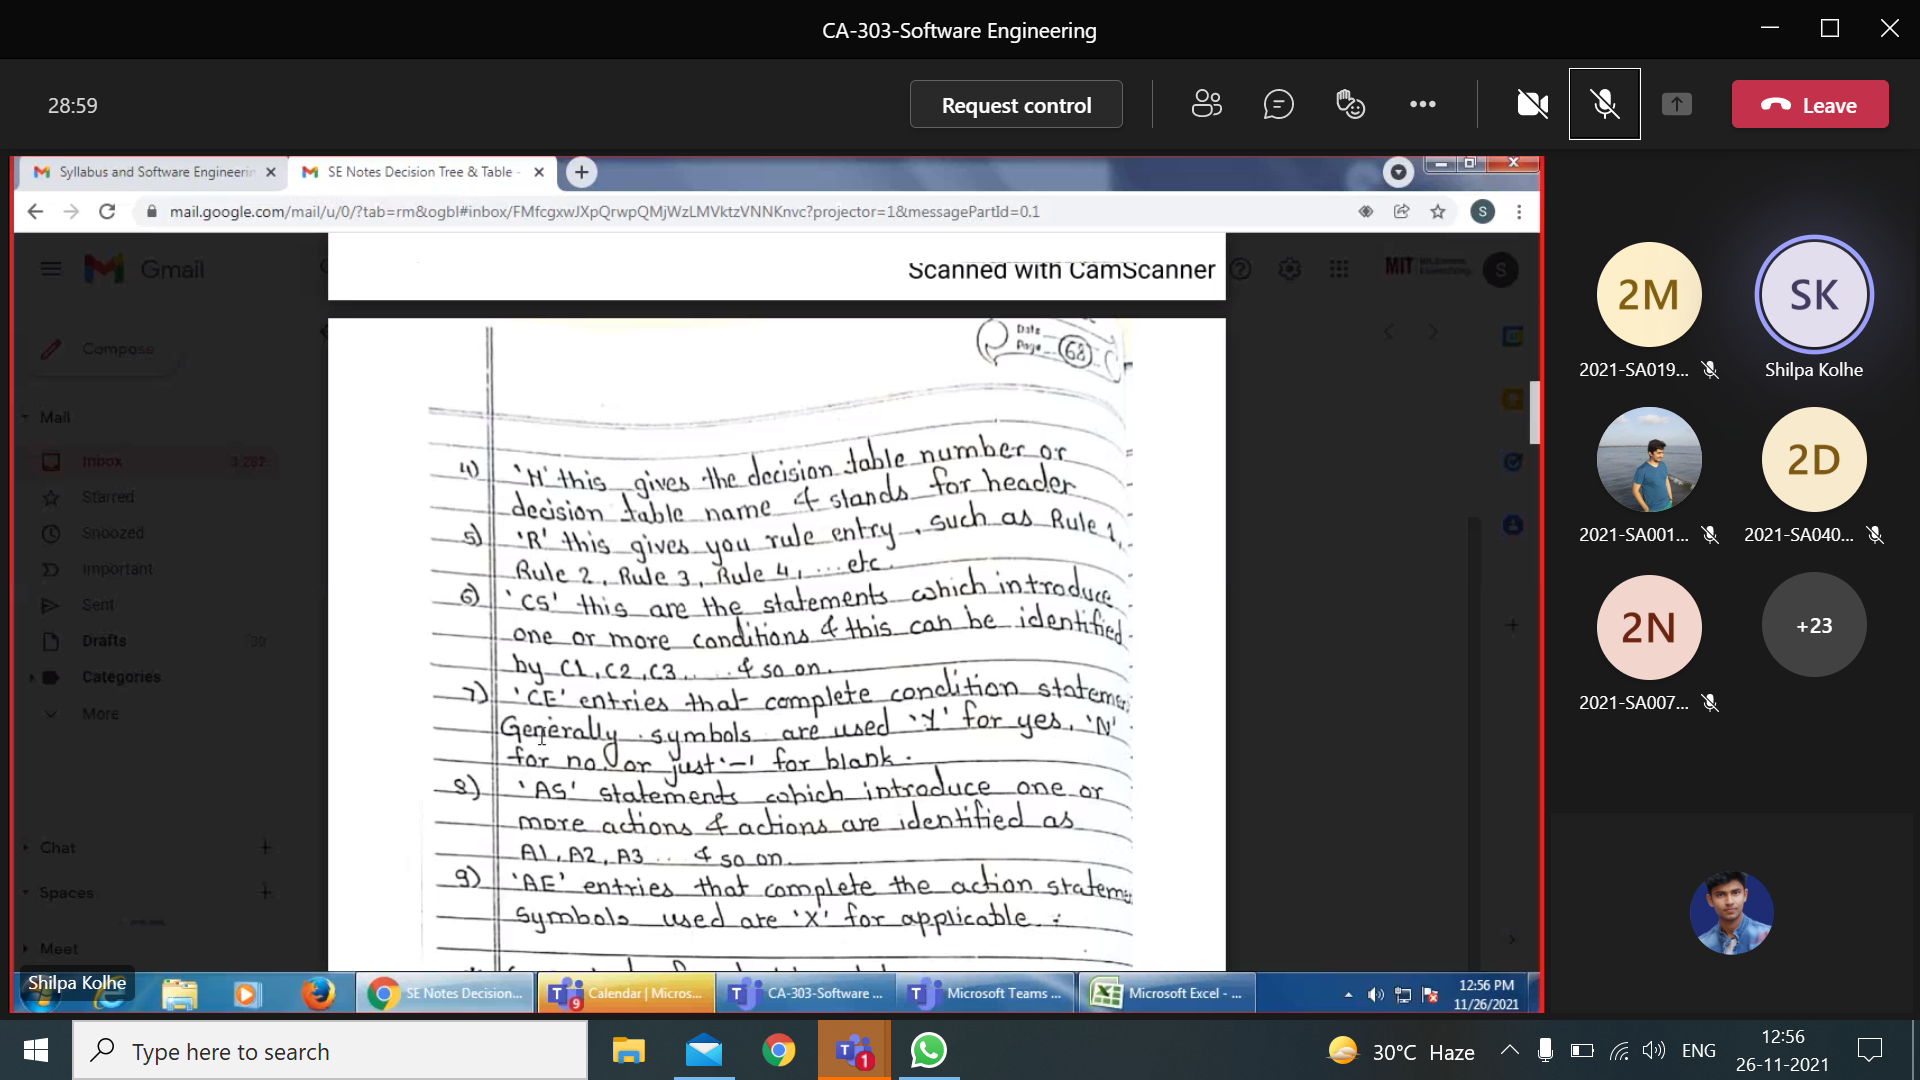 CA-303-Software Engineering
28:59
Request control
Leave
Syllabus and Software Engineerin
SE Notes Decision Tree & Table -
mail.google.com/mail/u/0/?tab=rm&ogbl#inbox/FMfcgxwJXpQrwpQMjWzLMVktzVNNKnvc?projector=1&messagePartId=0.1
S
Gmail
Scanned with CamScanner
MIT
S
Compose
Mail
Inbox 3,282
Starred
Snoozed
Important
Sent
Drafts
Categories
More
Chat
Spaces
Meet
Date
Page 68
4) 'H' this gives the decision table number or
decision table name & stands for header
5) 'R' this gives you rule entry, such as Rule 1,
Rule 2, Rule 3, Rule 4, ... etc.
6) 'CS' this are the statements which introduce
one or more conditions & this can be identified
by C1, C2, C3, ... & so on.
7) 'CE' entries that complete condition stateme
Generally symbols are used 'Y' for yes, 'N'
for no, or just '-' for blank.
8) 'AS' statements which introduce one or
more actions & actions are identified as
A1, A2, A3 ... & so on.
9) 'AE' entries that complete the action stateme
symbols used are 'X' for applicable.
2M
SK
2021-SA019...
Shilpa Kolhe
2D
2021-SA001...
2021-SA040...
2N
+23
2021-SA007...
Shilpa Kolhe
SE Notes Decision...
9
Calendar | Micros...
CA-303-Software ...
Microsoft Teams ...
Microsoft Excel - ...
12:56 PM
11/26/2021
Type here to search
1
30°C Haze
ENG
12:56
26-11-2021